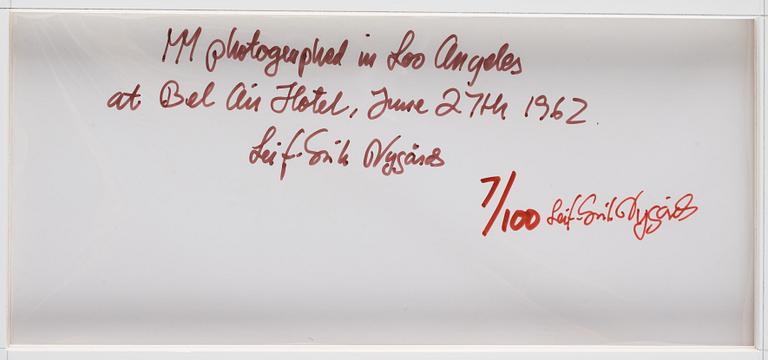 MM photographed in Los Angeles
at Bel Air Hotel, June 27th 1962.
Leif-Erik Nygårds
7/100 Leif-Erik Nygårds